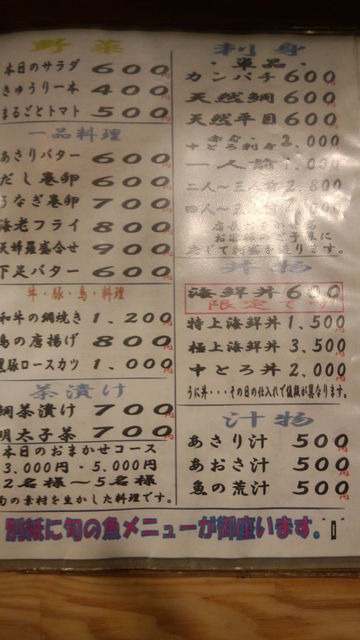 野菜
本日のサラダ 600円
きゅうり一本 400円
まるごとトマト 500円
一品料理
あさりバター 600円
だし巻卵 600円
うなぎ巻卵 700円
海老フライ 800円
天婦羅盛合せ 900円
下足バター 600円
牛・豚・鳥・料理
和牛の網焼き 1,200円
鳥の唐揚げ 800円
黒豚ロースカツ 1,000円
茶漬け
鯛茶漬け 700円
明太子茶 700円
本日のおまかせコース
3,000円・5,000円
2名様〜5名様
旬の素材を生かした料理です。
刺身
・単品・
カンパチ 600円
天然鯛 600円
天然平目 600円
中とろ刺身 2,000円
一人前 1,000円
二人〜三人前 2,800円
四人〜五人前
応じて刺盛を造ります。
丼物
海鮮丼 600円
限定です
特上海鮮丼 1,500円
極上海鮮丼 3,500円
中とろ丼 2,000円
うに丼・・・その日の仕入れで値段が異なります。
汁物
あさり汁 500円
あおさ汁 500円
魚の荒汁 500円
別紙に旬の魚メニューが御座います。